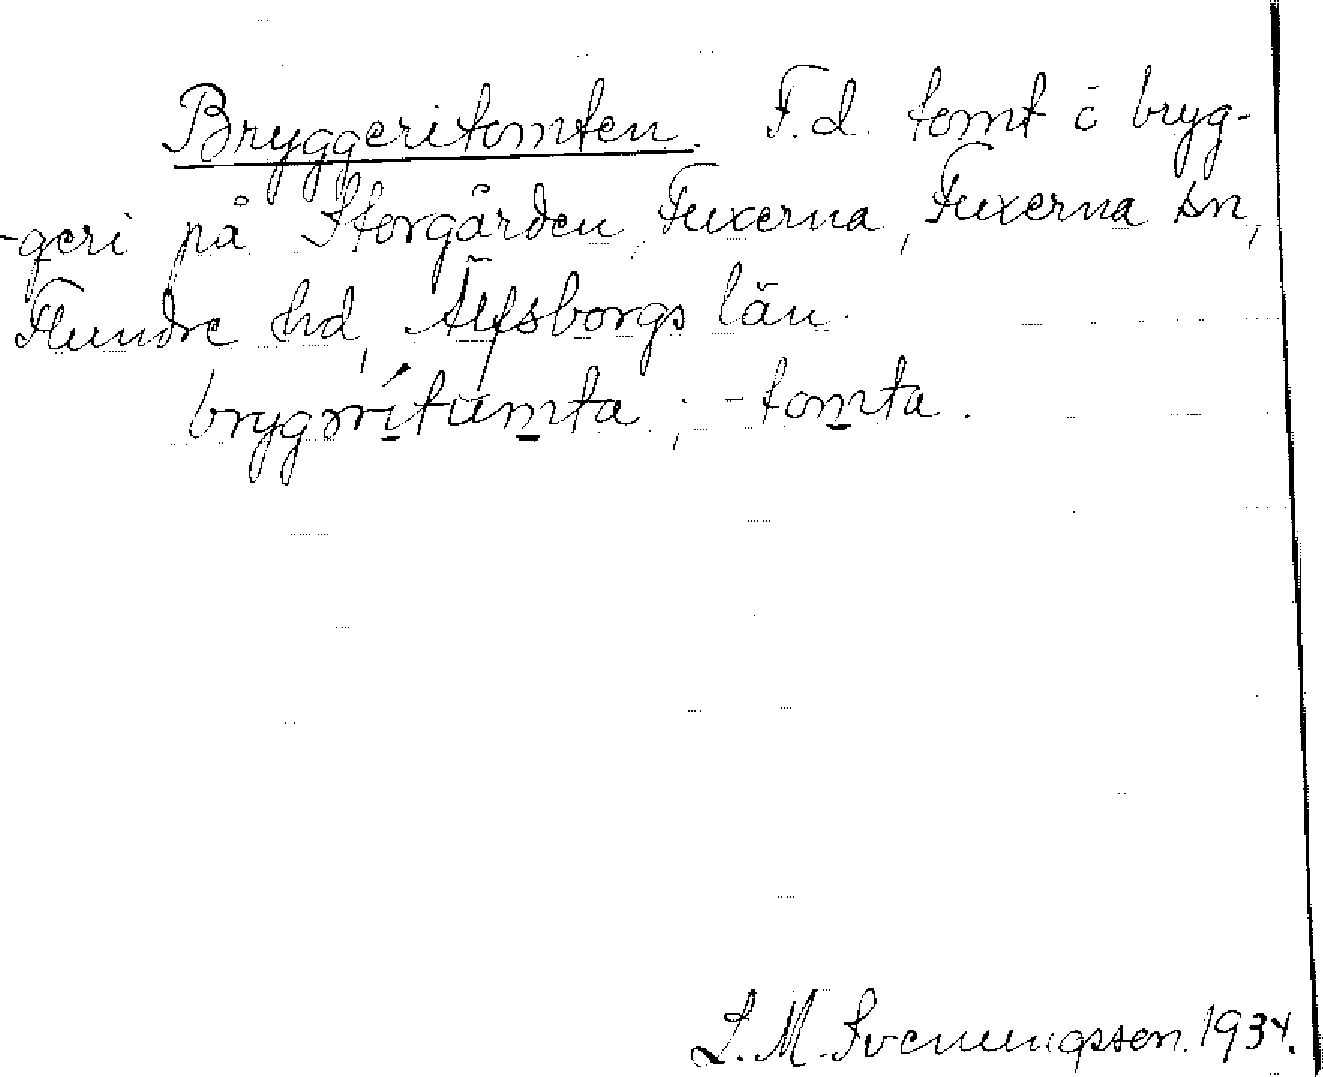 Bryggeritomten. F.d. tomt å bryg-
-geri på Storgården, Fuxerna, Fuxerna sn,
Flundre hd, Älfsborgs län.
, -tomta.
L. M. Svenungsson. 1934.